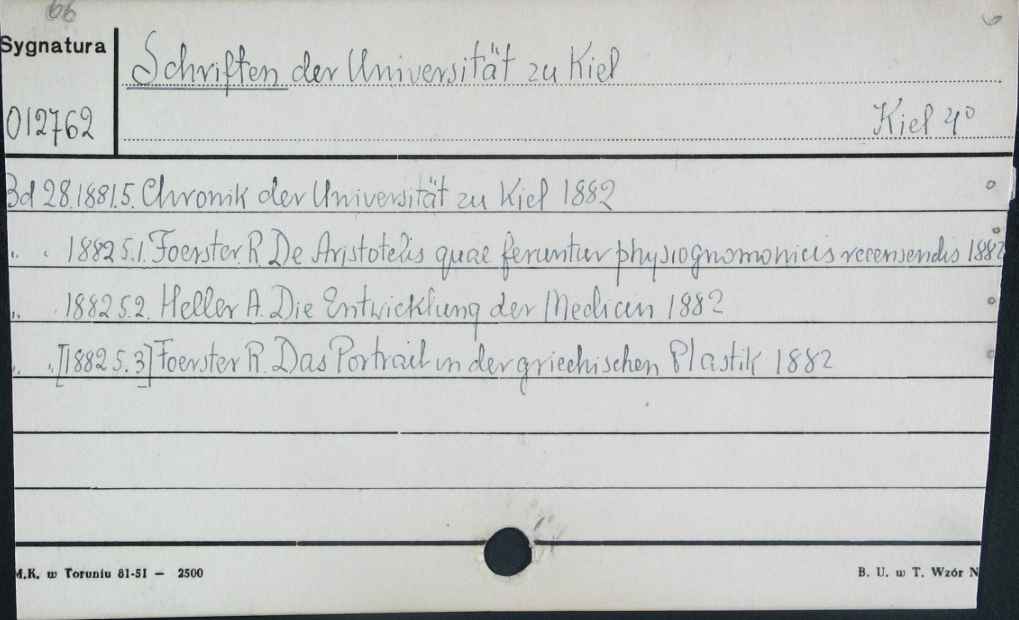 66
Sygnatura
Schriften der Universität zu Kiel
012762
Kiel 4°
Bd 28.1881.5. Chronik der Universität zu Kiel 1882
" " 1882 5.1. Foerster R. De Aristotelis quae feruntur physiognomonicis recensendis 1882
" " 1882 5.2. Heller A. Die Entwicklung der Medicin 1882
" " [1882 5.3] Foerster R. Das Portrait in der griechischen Plastik 1882
M.K. w Toruniu 81-51 — 2500
B. U. w T. Wzór N